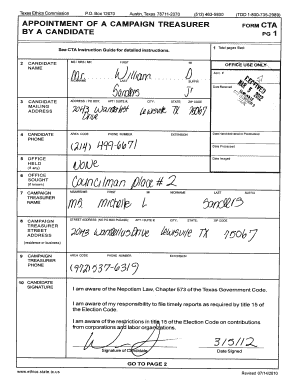 Texas Ethics Commission P.O. Box 12070 Austin, Texas 78711-2070 (512) 463-5800 (TDD 1-800-735-2989)
APPOINTMENT OF A CAMPAIGN TREASURER BY A CANDIDATE
FORM CTA
PG 1
See CTA Instruction Guide for detailed instructions.
1 Total pages filed:
2 CANDIDATE NAME
MS / MRS / MR FIRST MI
Mr. William D
LAST SUFFIX
Sanders Jr
OFFICE USE ONLY
Acct. #
Date Received
3 CANDIDATE MAILING ADDRESS
ADDRESS / PO BOX; APT / SUITE #; CITY; STATE; ZIP CODE
2043 Wanderlust Drive Lewisville TX 75067
4 CANDIDATE PHONE
AREA CODE PHONE NUMBER EXTENSION
(214) 499-6671
Date Hand-delivered or Postmarked
Date Processed
Date Imaged
5 OFFICE HELD (if any)
NONE
6 OFFICE SOUGHT (if known)
Councilman place # 2
7 CAMPAIGN TREASURER NAME
MS/MRS/MR FIRST MI NICKNAME LAST SUFFIX
ms michelle L Sanders
8 CAMPAIGN TREASURER STREET ADDRESS
(residence or business)
STREET ADDRESS (NO PO BOX PLEASE); APT / SUITE #; CITY; STATE; ZIP CODE
2043 Wanderlust Drive Lewisville TX 75067
9 CAMPAIGN TREASURER PHONE
AREA CODE PHONE NUMBER EXTENSION
(972) 537-6319
10 CANDIDATE SIGNATURE
I am aware of the Nepotism Law, Chapter 573 of the Texas Government Code.
I am aware of my responsibility to file timely reports as required by title 15 of the Election Code.
I am aware of the restrictions in title 15 of the Election Code on contributions from corporations and labor organizations.
3/5/12
Signature of Candidate Date Signed
GO TO PAGE 2
www.ethics.state.tx.us Revised 07/14/2010